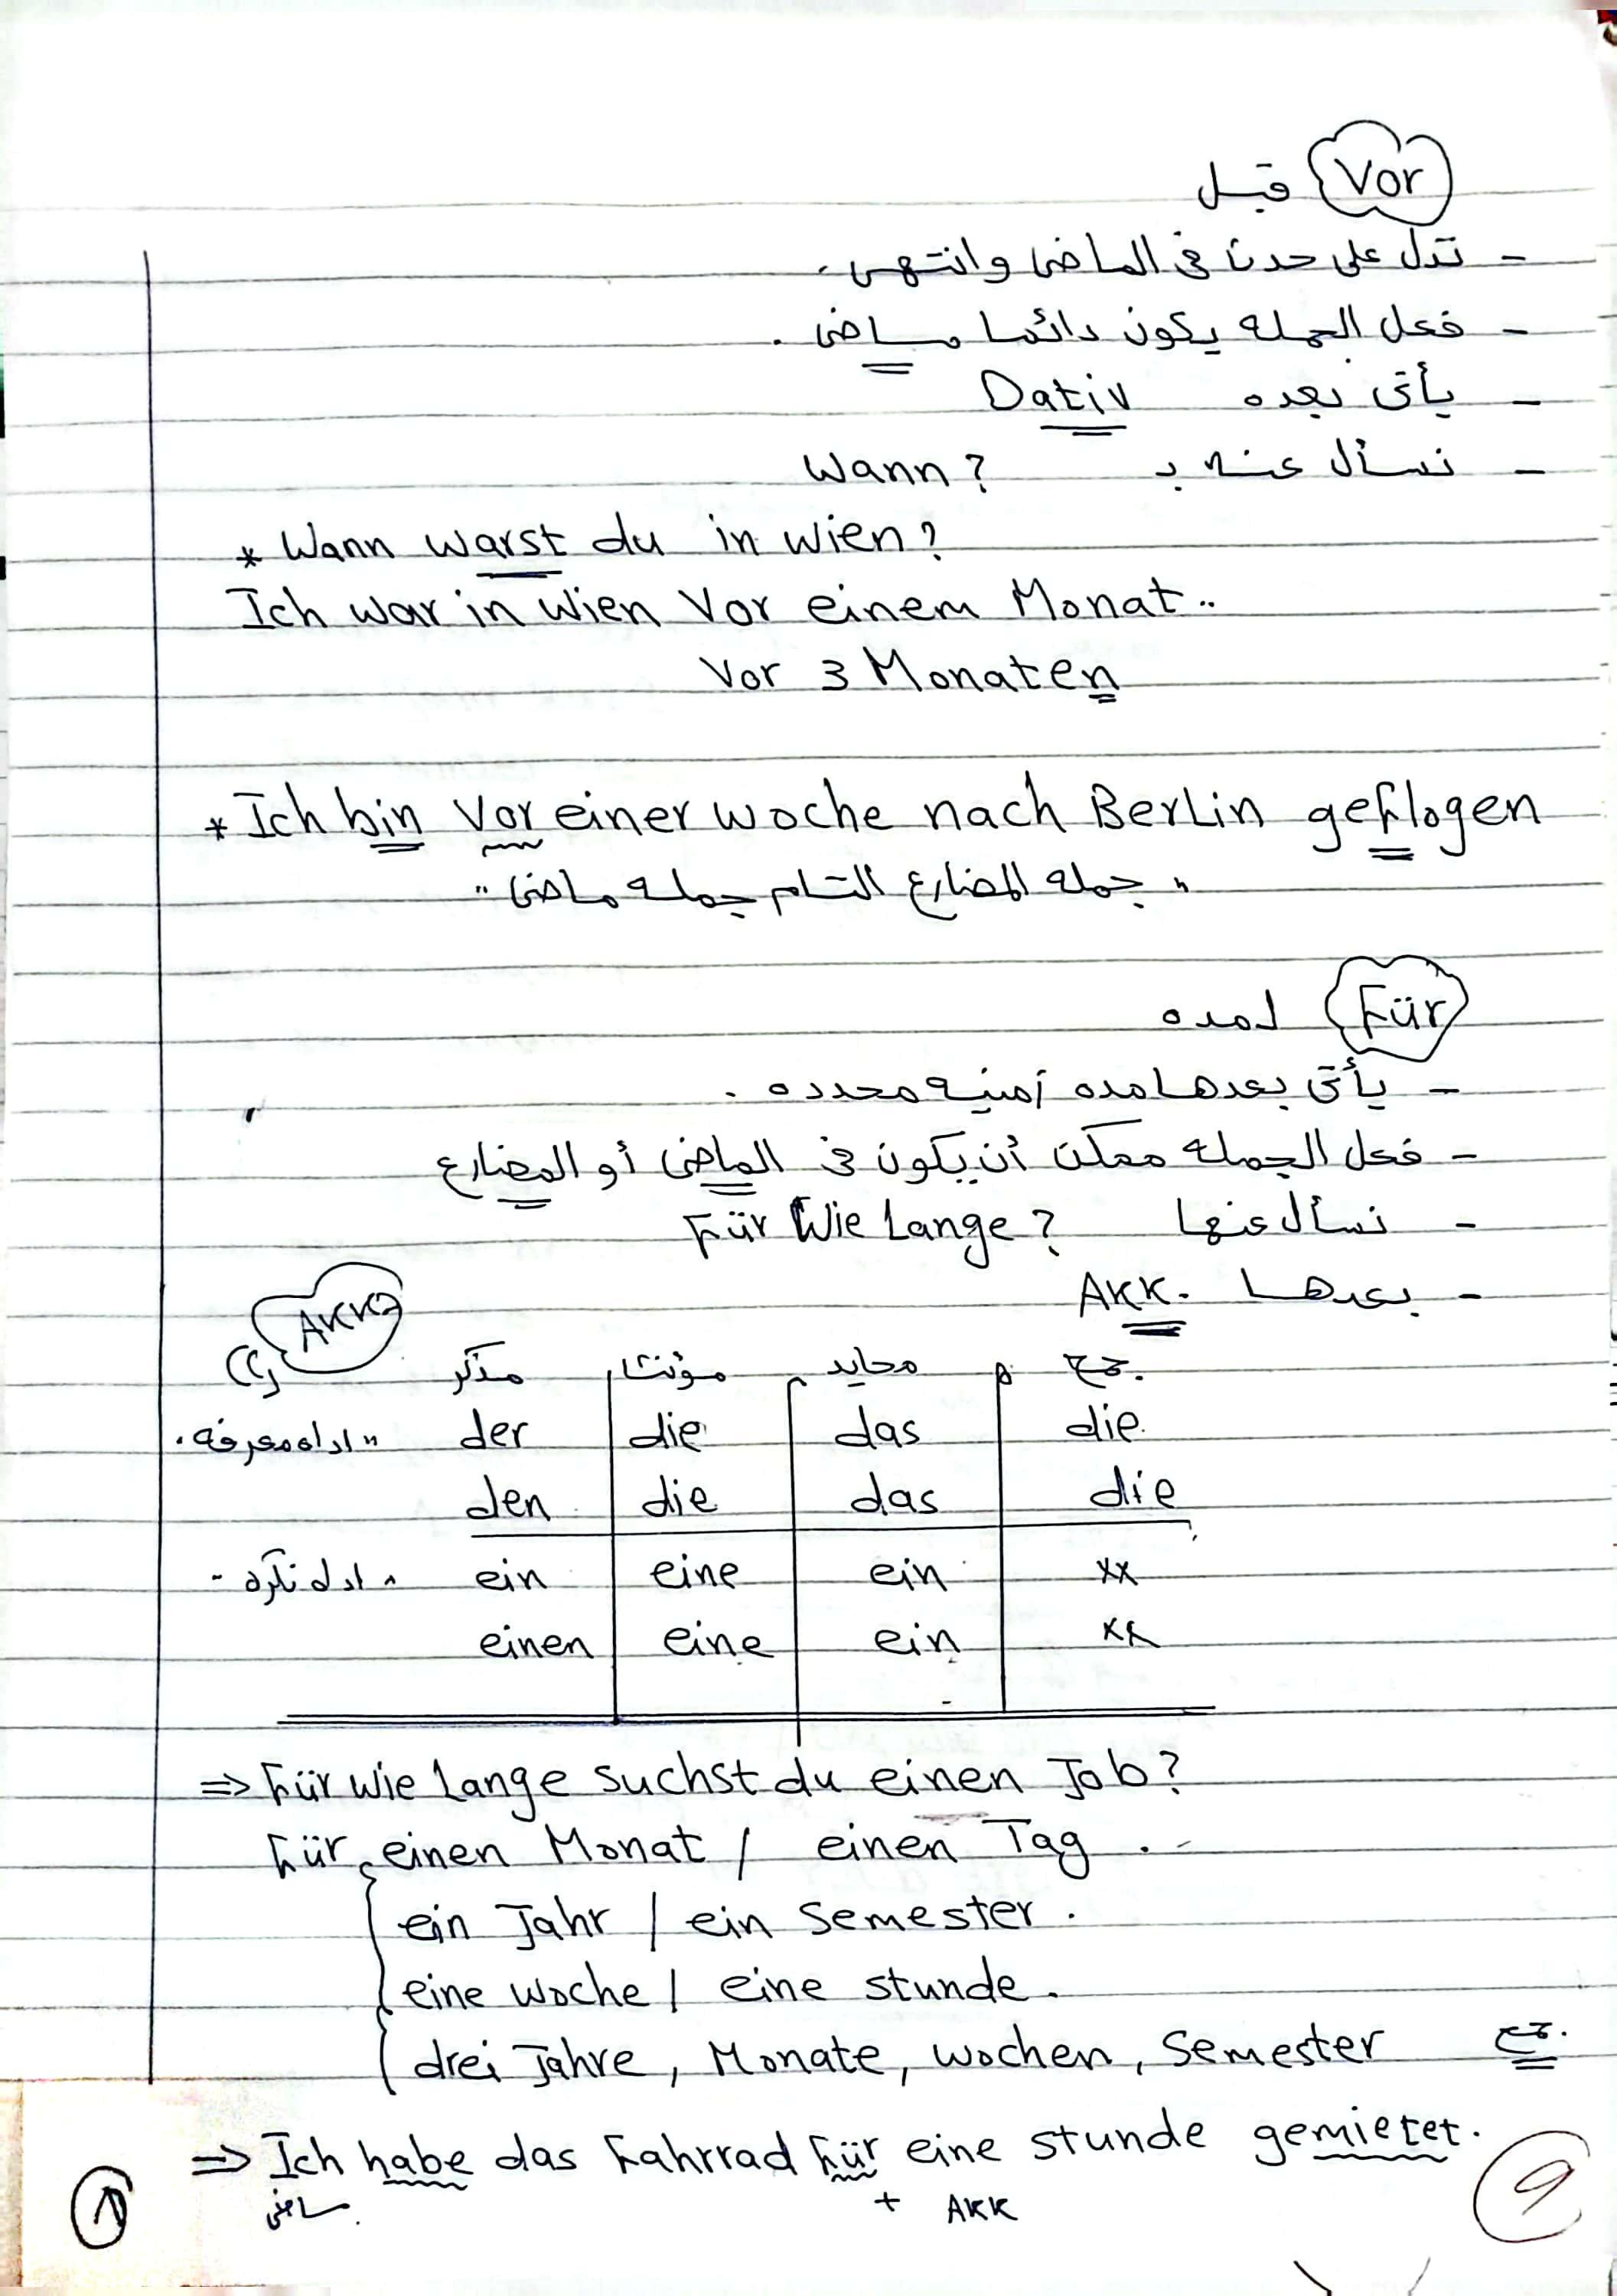 Vor قبل
- تدل على حدث فى الماضى وانتهى.
- فعل الجمله يكون دائما ماضى.
- يأتى بعده Dativ
- نسأل عنه بـ Wann?
* Wann warst du in Wien?
Ich war in Wien Vor einem Monat..
Vor 3 Monaten
* Ich bin Vor einer Woche nach Berlin geflogen
" جمله المضارع التام جمله ماضى "
Für لمده
- يأتى بعدها مده زمنيه محدده.
- فعل الجمله ممكن أن يكون فى الماضى أو المضارع
- نسأل عنها Für Wie Lange?
- بعدها AKK.
AKK
مذكر مؤنث محايد جمع
" اداه معرفه. der die das die
den die das die
" اداه نكره - ein eine ein xx
einen eine ein xx
⇒ Für Wie Lange suchst du einen Job?
Für einen Monat / einen Tag .-
ein Jahr / ein Semester.
eine Woche / eine Stunde.
drei Jahre, Monate, Wochen, Semester جمع.
⇒ Ich habe das Fahrrad Für eine Stunde gemietet.
ماضى + AKK
٨ 9